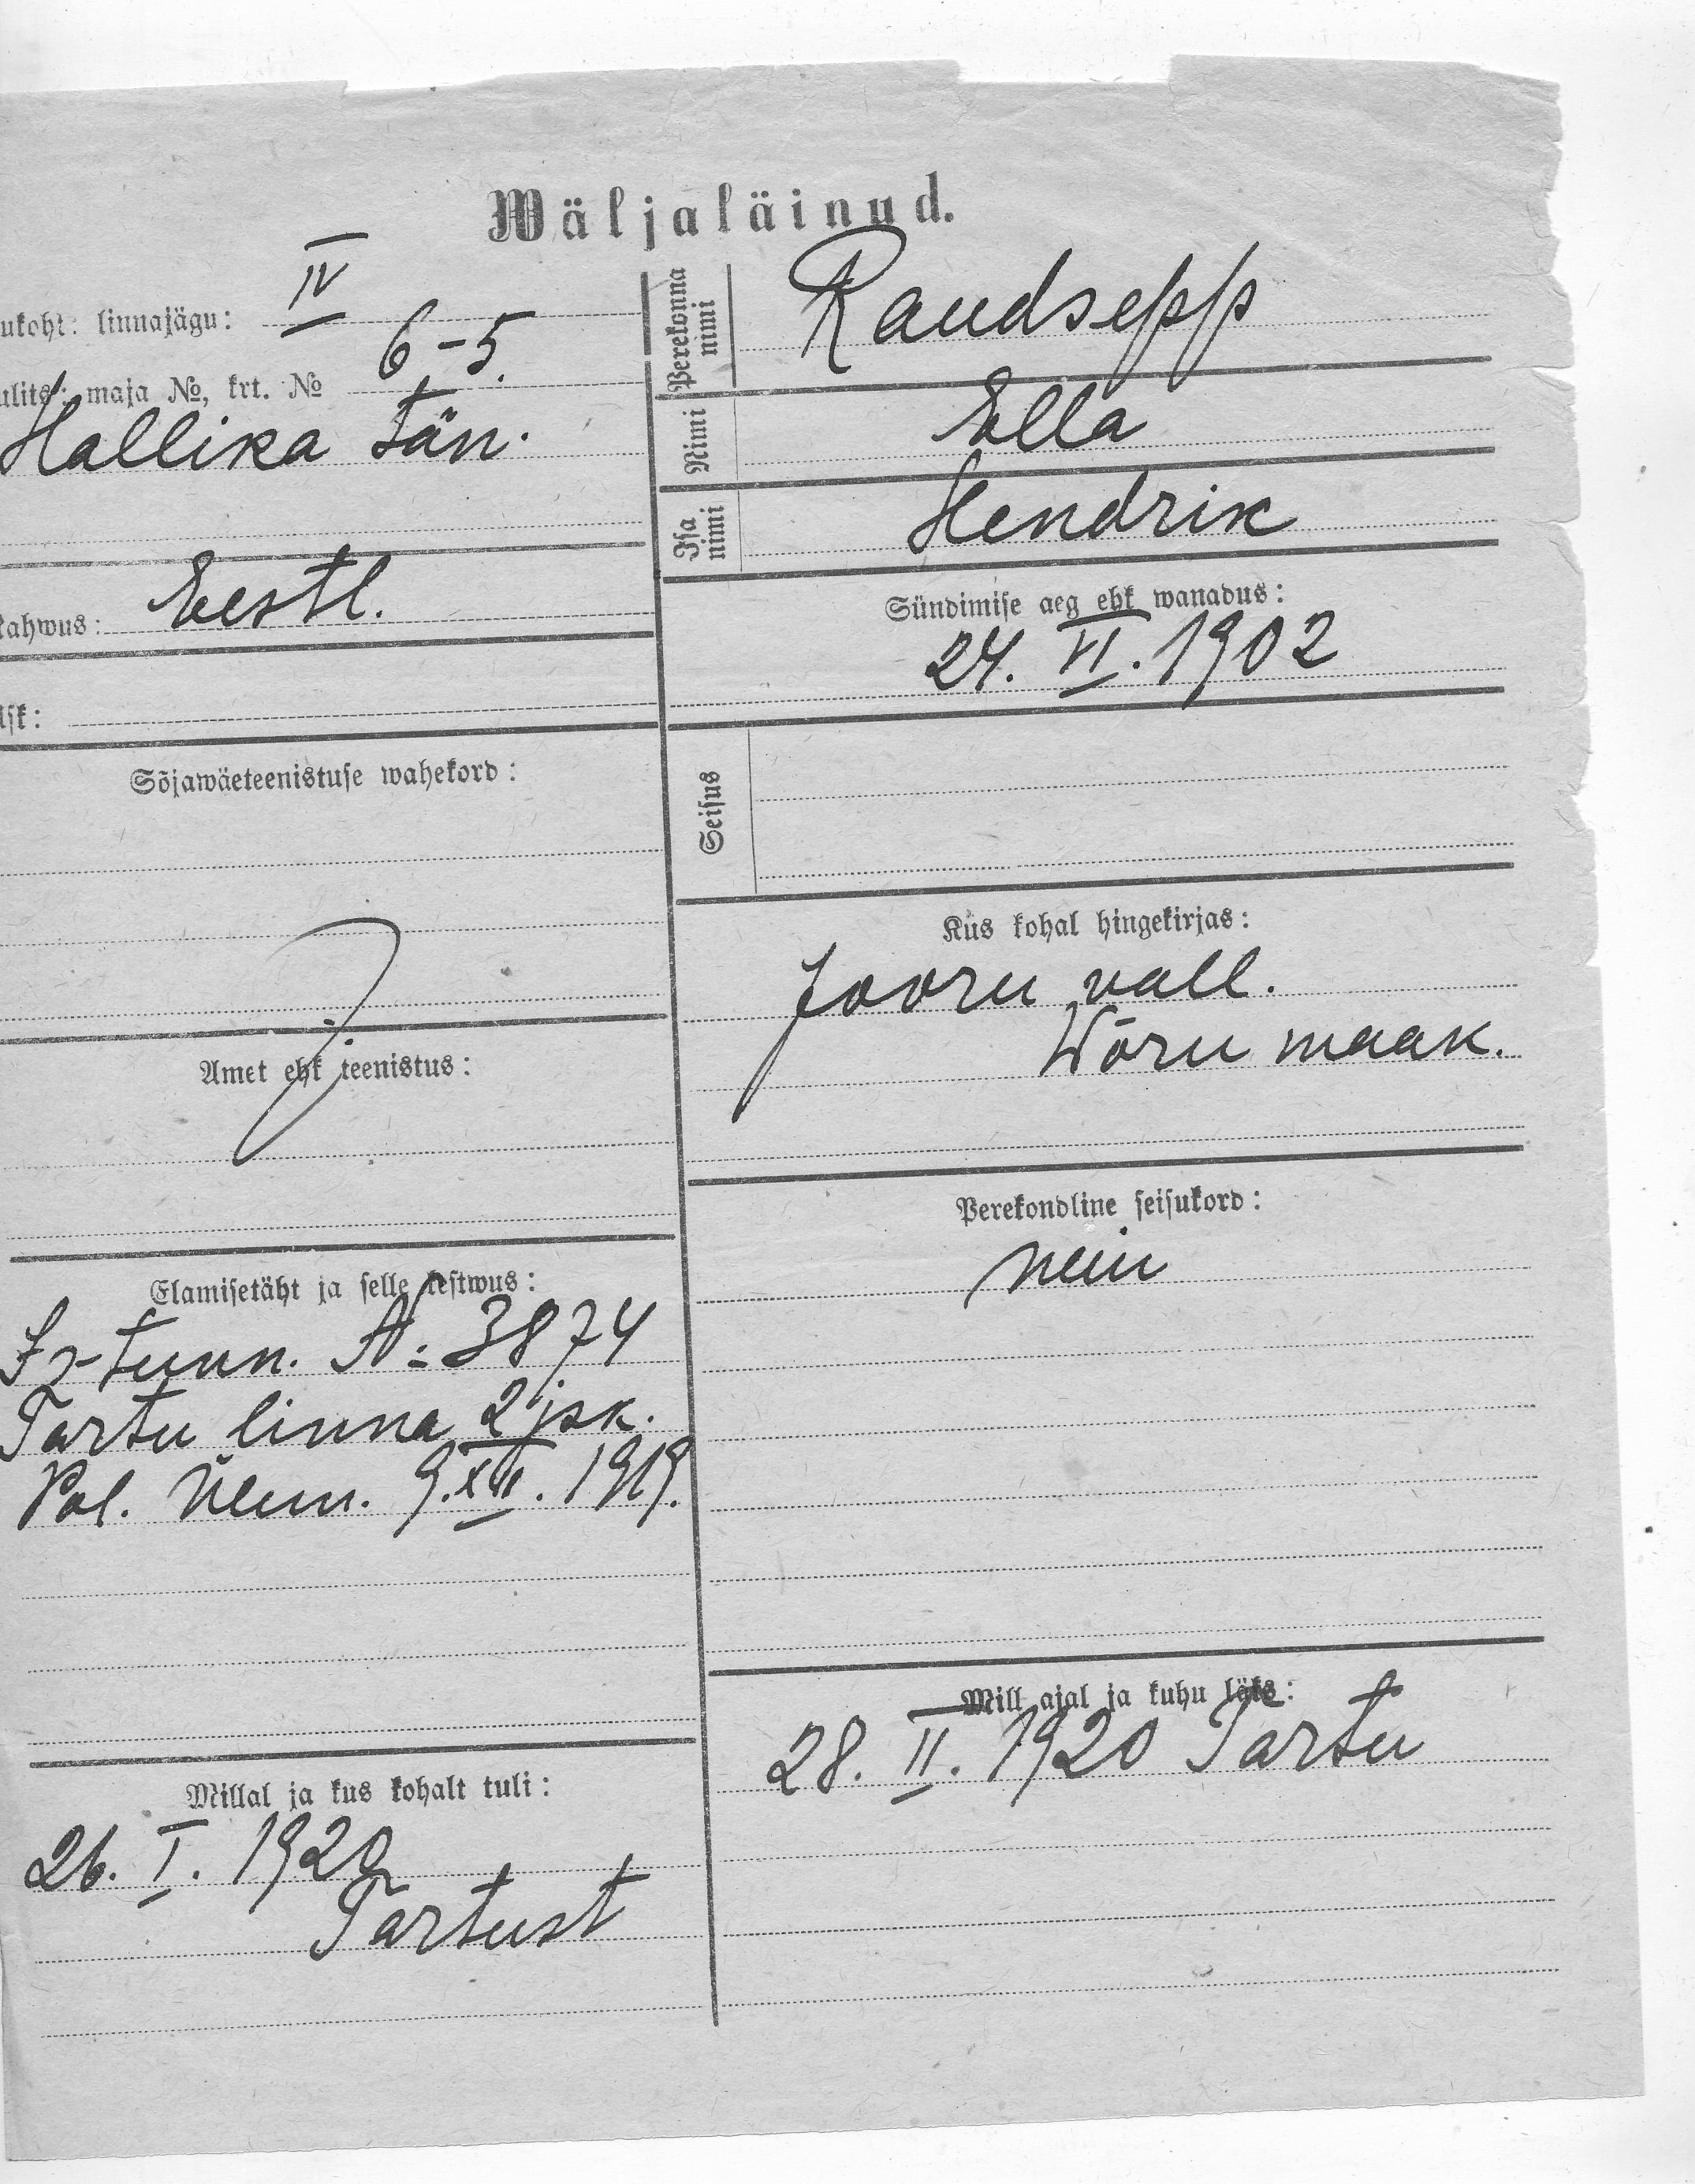 Wäljaläinud.
ukoht: linnajägu: IV
ulits: maja №, krt. № 6-5.
Hallika tän.
Perekonna nimi Raudsepp
Nimi Ella
Isa nimi Hendrik
kahwus: Eestl.
Sündimise aeg ehk wanadus:
24. VI. 1902
Sõjawäeteenistuse wahekord:
Seisus
Kus kohal hingekirjas:
Jooru vall.
Wõru maak.
Amet ehk teenistus:
Perekondline seisukord:
neiu
Elamisetäht ja selle kestwus:
tunn. №: 3874
Tartu linna 2 jsk.
Pol. Ülem. 9. XII. 1919.
Mill ajal ja kuhu läks:
28. II. 1920 Tartu
Millal ja kus kohalt tuli:
26. I. 1920
Tartust